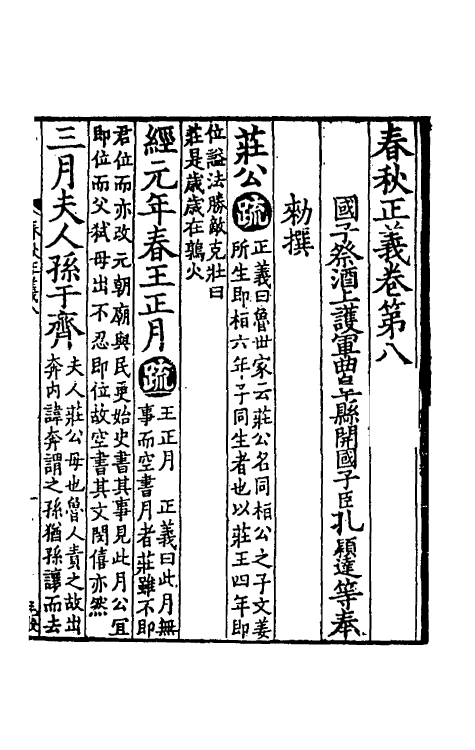 春秋正義卷第八
國子祭酒上護軍曲阜縣開國子臣孔穎達等奉
勑撰
莊公 疏 正義曰魯世家云莊公名同桓公之子文姜
所生即桓六年子同生者也以莊王四年即
位謚法勝敵克壯曰
莊是歲歲在鶉火
經元年春王正月 疏 王正月 正義曰此月無
事而空書月者莊雖不即
君位而亦改元朝廟與民更始史書其事見此月公宜
即位而父弒母出不忍即位故空書其文閔僖亦然
三月夫人孫于齊 夫人莊公母也魯人責之故出
奔内諱奔謂之孫猶孫讓而去